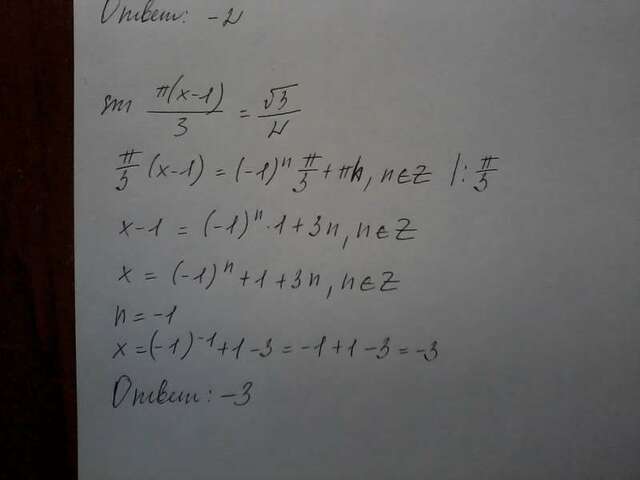 Ответ: -2
sin π(x-1)/3 = √3/2
π/3 (x-1) = (-1)ⁿ π/3 + πn, n∈Z |: π/3
x-1 = (-1)ⁿ·1+3n, n∈Z
x = (-1)ⁿ+1+3n, n∈Z
n = -1
x = (-1)⁻¹+1-3 = -1+1-3 = -3
Ответ: -3